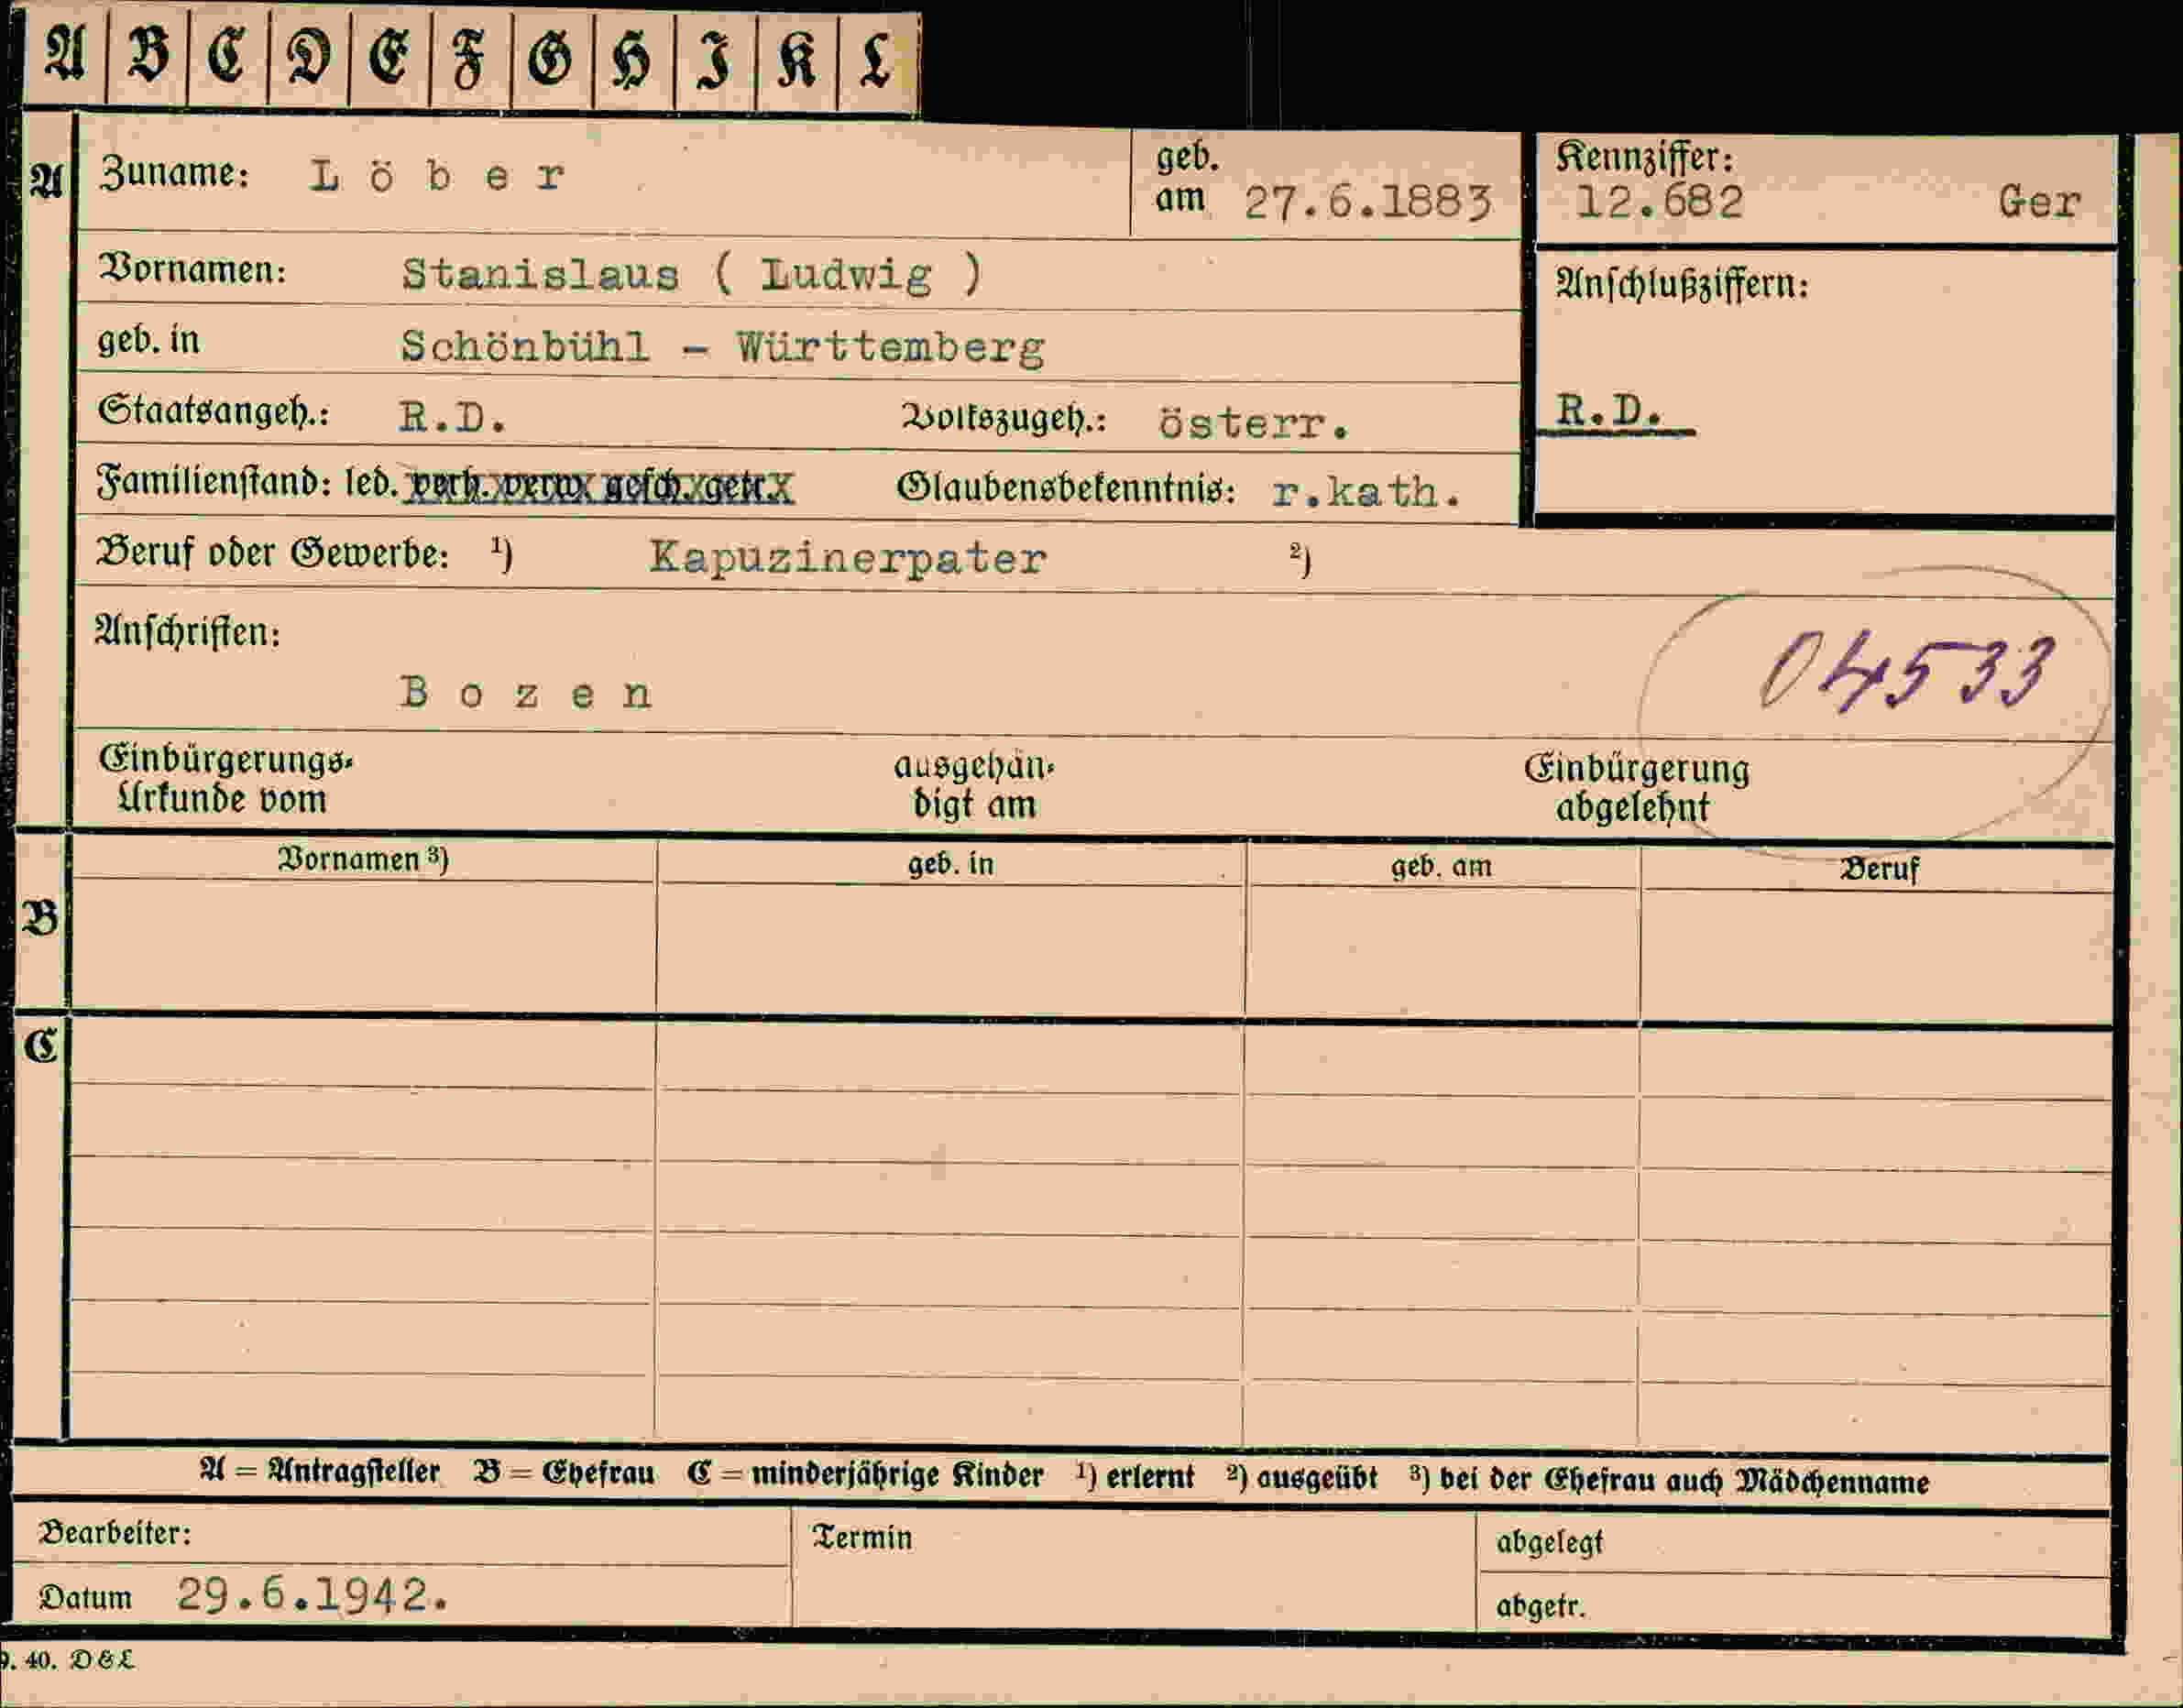 A B C D E F G H I K L
A Zuname: Löber geb. am 27.6.1883 Kennziffer: 12.682 Ger
Vornamen: Stanislaus ( Ludwig ) Anschlußziffern:
geb. in Schönbühl - Württemberg
Staatsangeh.: R.D. Volkszugeh.: österr. R.D.
Familienstand: led. verh. verw. gesch. getr. Glaubensbekenntnis: r.kath.
Beruf oder Gewerbe: ¹) Kapuzinerpater ²)
Anschriften:
Bozen 04533
Einbürgerungs-
Urkunde vom
ausgehän-
digt am
Einbürgerung
abgelehnt
Vornamen ³) geb. in geb. am Beruf
B
C
A = Antragsteller B = Ehefrau C = minderjährige Kinder ¹) erlernt ²) ausgeübt ³) bei der Ehefrau auch Mädchenname
Bearbeiter: Termin abgelegt
Datum 29.6.1942. abgetr.
9. 40. D&L